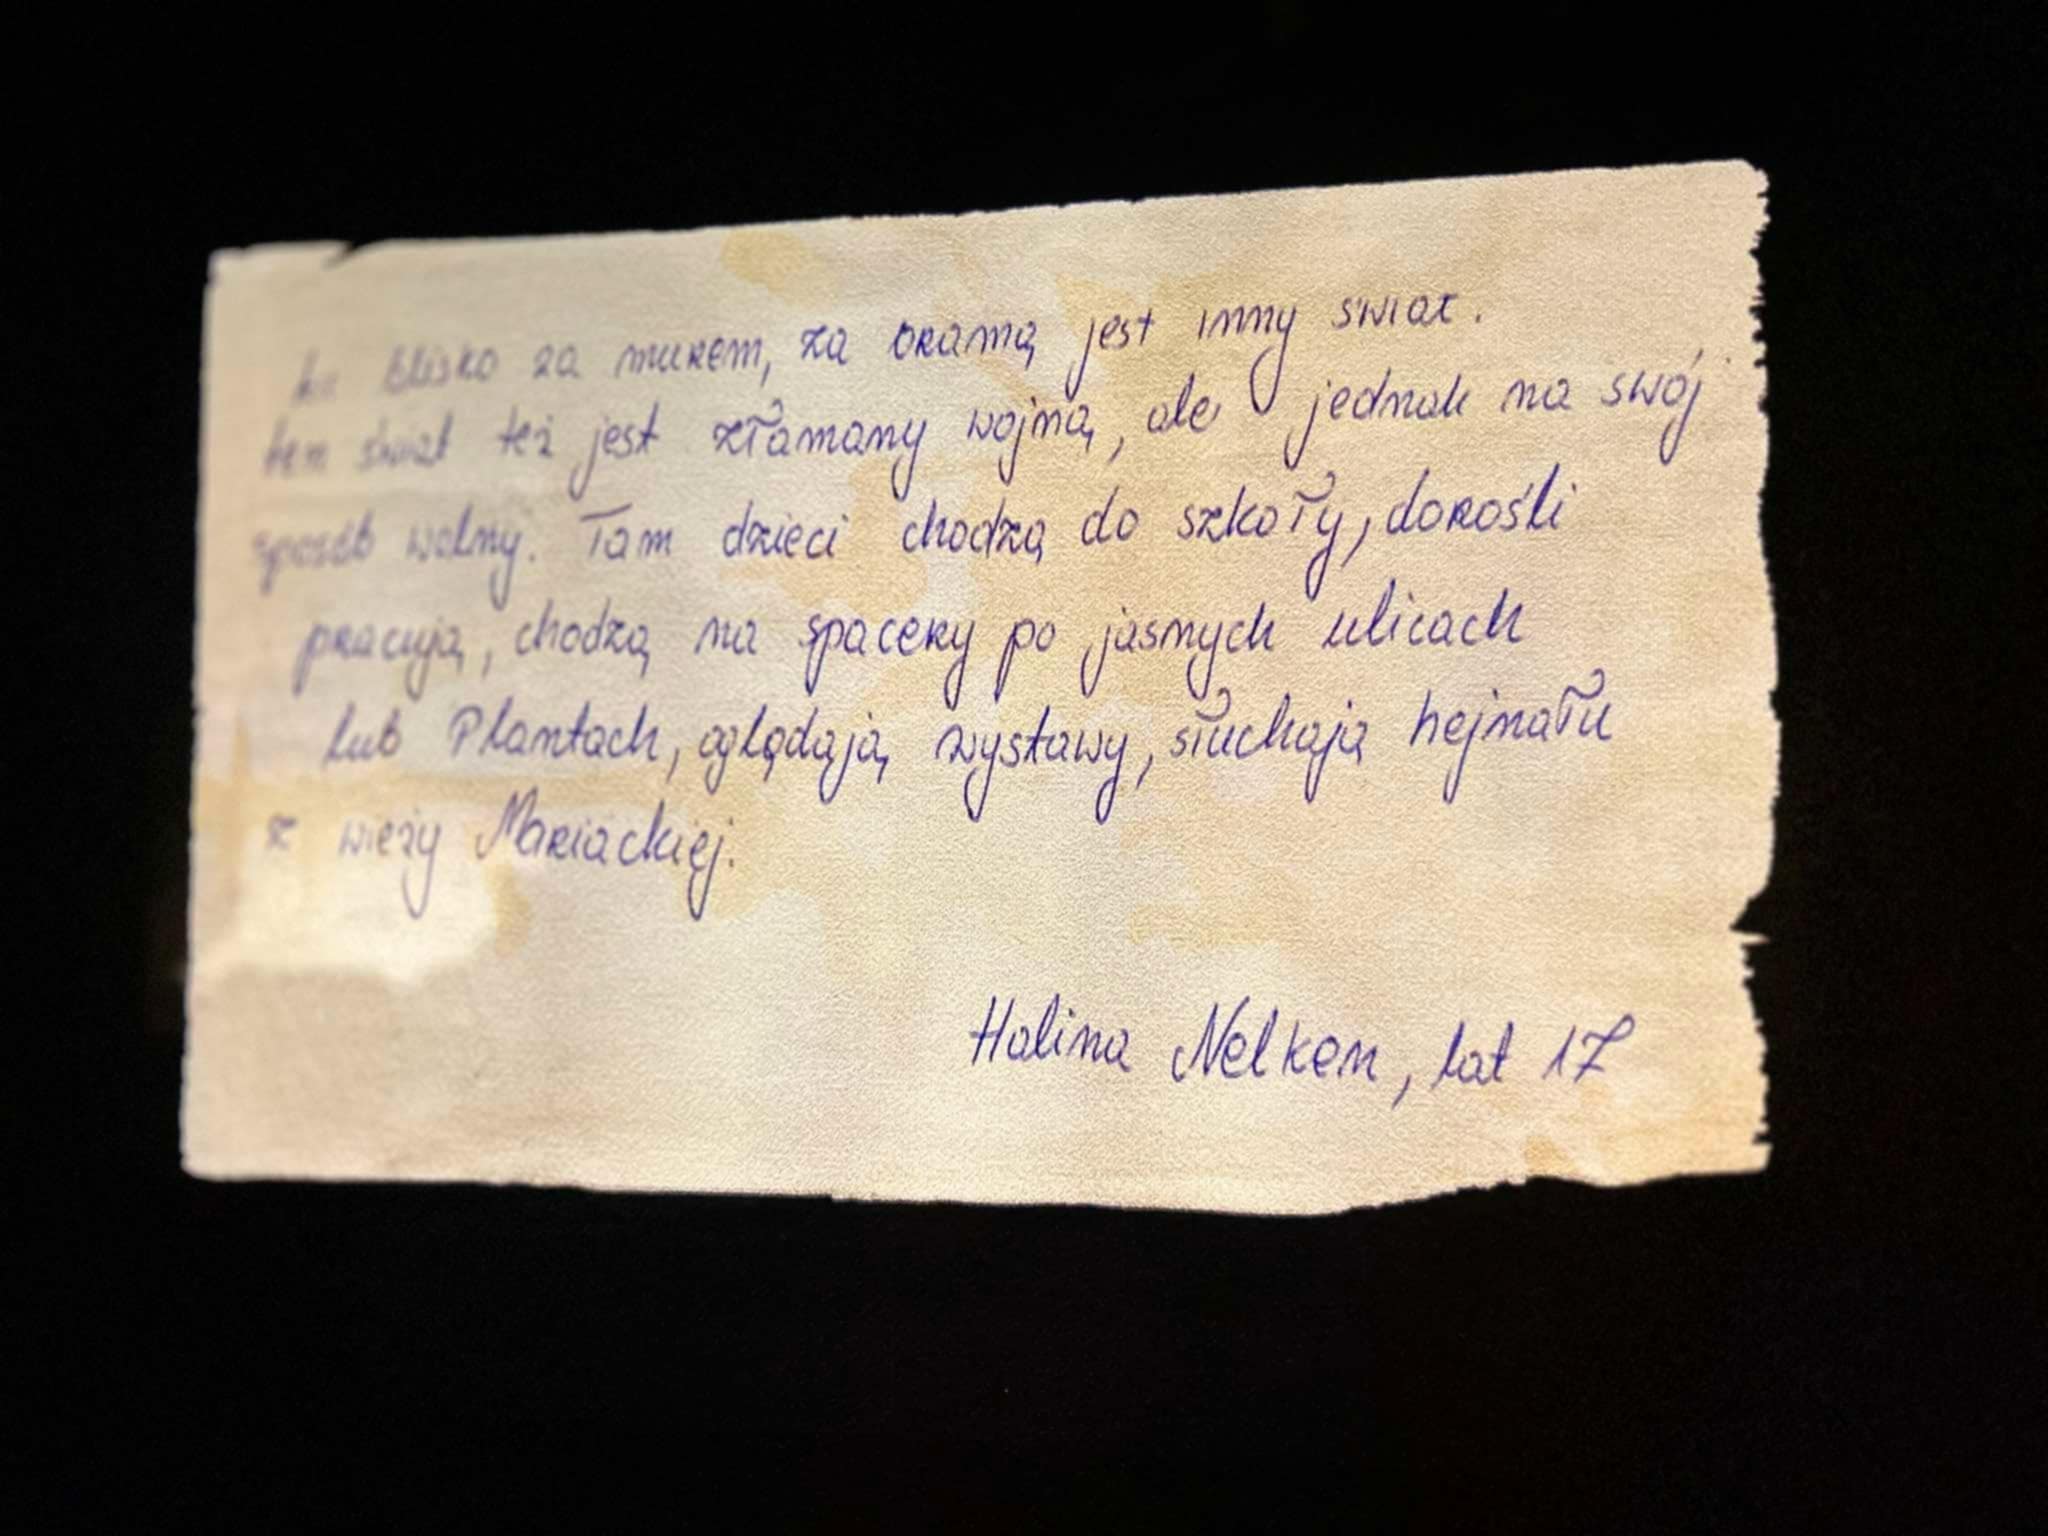 blisko za murem, za bramą jest inny świat.
ten świat też jest złamany wojną, ale jednak na swój
sposób wolny. Tam dzieci chodzą do szkoły, dorośli
pracują, chodzą na spacery po jasnych ulicach
lub Plantach, oglądają wystawy, słuchają hejnału
z wieży Mariackiej.
Halina Nelken, lat 17